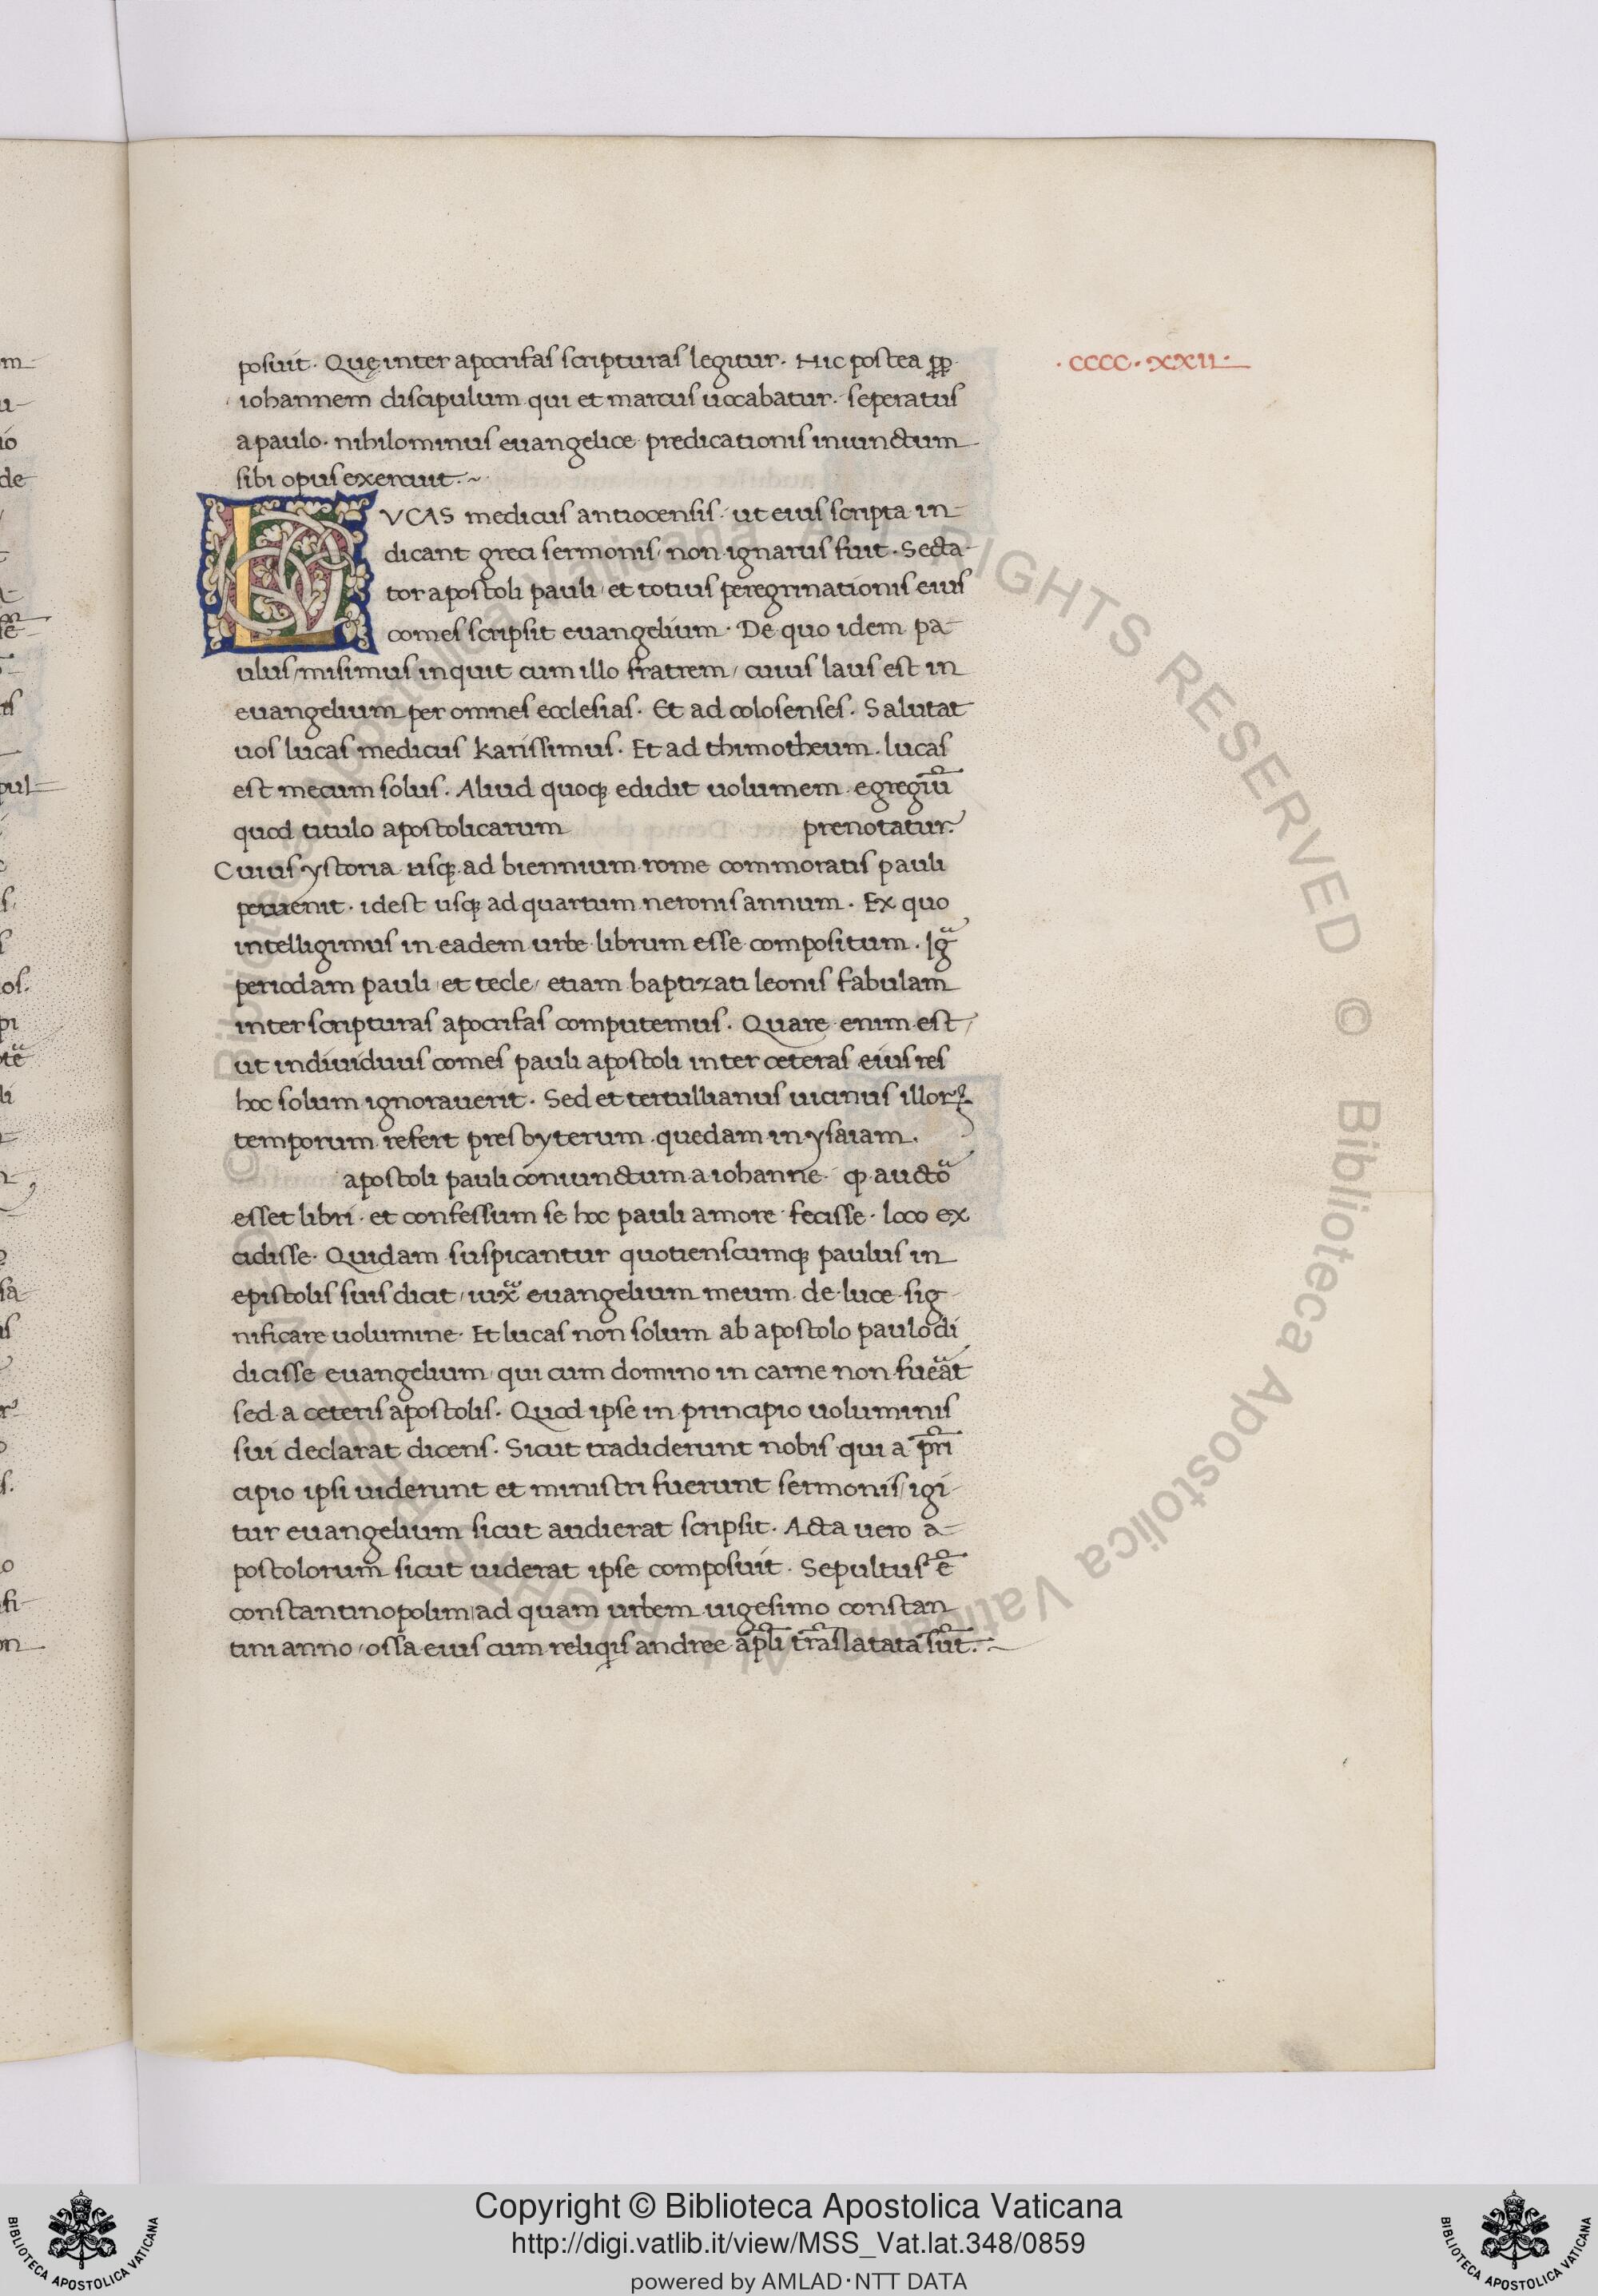 posuit. Quę inter apocrifas scripturas legitur. Hic postea ꝓꝓ
.CCCC.XXII.
iohannem discipulum qui et marcus uocabatur. seperatus
a paulo. nihilominus euangelice predicationis iniunctum
sibi opus exercuit.~
LVCAS medicus antiocensis. ut eius scripta in-
dicant greci sermonis, non ignarus fuit. Secta-
tor apostoli pauli, et totius peregrinationis eius
comes scripsit euangelium. De quo idem pa-
ulus, misimus inquit cum illo fratrem, cuius laus est in
euangelium per omnes ecclesias. Et ad colosenses. Salutat
uos lucas medicus karissimus. Et ad thimotheum. lucas
est mecum solus. Aliud quoqꝫ edidit uolumem egregiū
quod titulo apostolicarum prenotatur.
Cuius ystoria usqꝫ ad biennium rome commoratis pauli
peruenit. idest usqꝫ ad quartum neronis annum. Ex quo
intelligimus in eadem urbe librum esse compositum. Igͣ
periodam pauli, et tecle, etiam baptizati leonis fabulam
inter scripturas apocrifas computemus. Quare enim est,
ut indiuiduus comes pauli apostoli inter ceteras eius res
hoc solum ignorauerit. Sed et tertullianus uicinus illoꝝ
temporum refert presbyterum quedam in ysaiam.
apostoli pauli coniunctum a iohanne. ꝙ auctoͣ
esset libri. et confessum se hoc pauli amore fecisse. loco ex
cidisse. Quidam suspicantur quotienscumqꝫ paulus in
epistolis suis dicit, iuxͣ euangelium meum de luce sig-
nificare uolumine. Et lucas non solum ab apostolo paulo di
dicisse euangelium, qui cum domino in carne non fueͣt
sed a ceteris apostolis. Quod ipse in principio uoluminis
sui declarat dicens. Sicut tradiderunt nobis qui a pri̅
cipio ipsi uiderunt et ministri fuerunt sermonis, igi-
tur euangelium sicut audierat scripsit. Acta uero a-
postolorum sicut uiderat ipse composuit. Sepultus ē
constantinopolim, ad quam urbem uigesimo constan
tini anno, ossa eius cum reliqis andree apl̅i tra̅slatata su̅t.~
© Biblioteca Apostolica Vaticana ALL RIGHTS RESERVED © Biblioteca Apostolica Vaticana ALL RIGHTS RESERVED
Copyright © Biblioteca Apostolica Vaticana
http://digi.vatlib.it/view/MSS_Vat.lat.348/0859
powered by AMLAD·NTT DATA
BIBLIOTECA APOSTOLICA VATICANA
BIBLIOTECA APOSTOLICA VATICANA